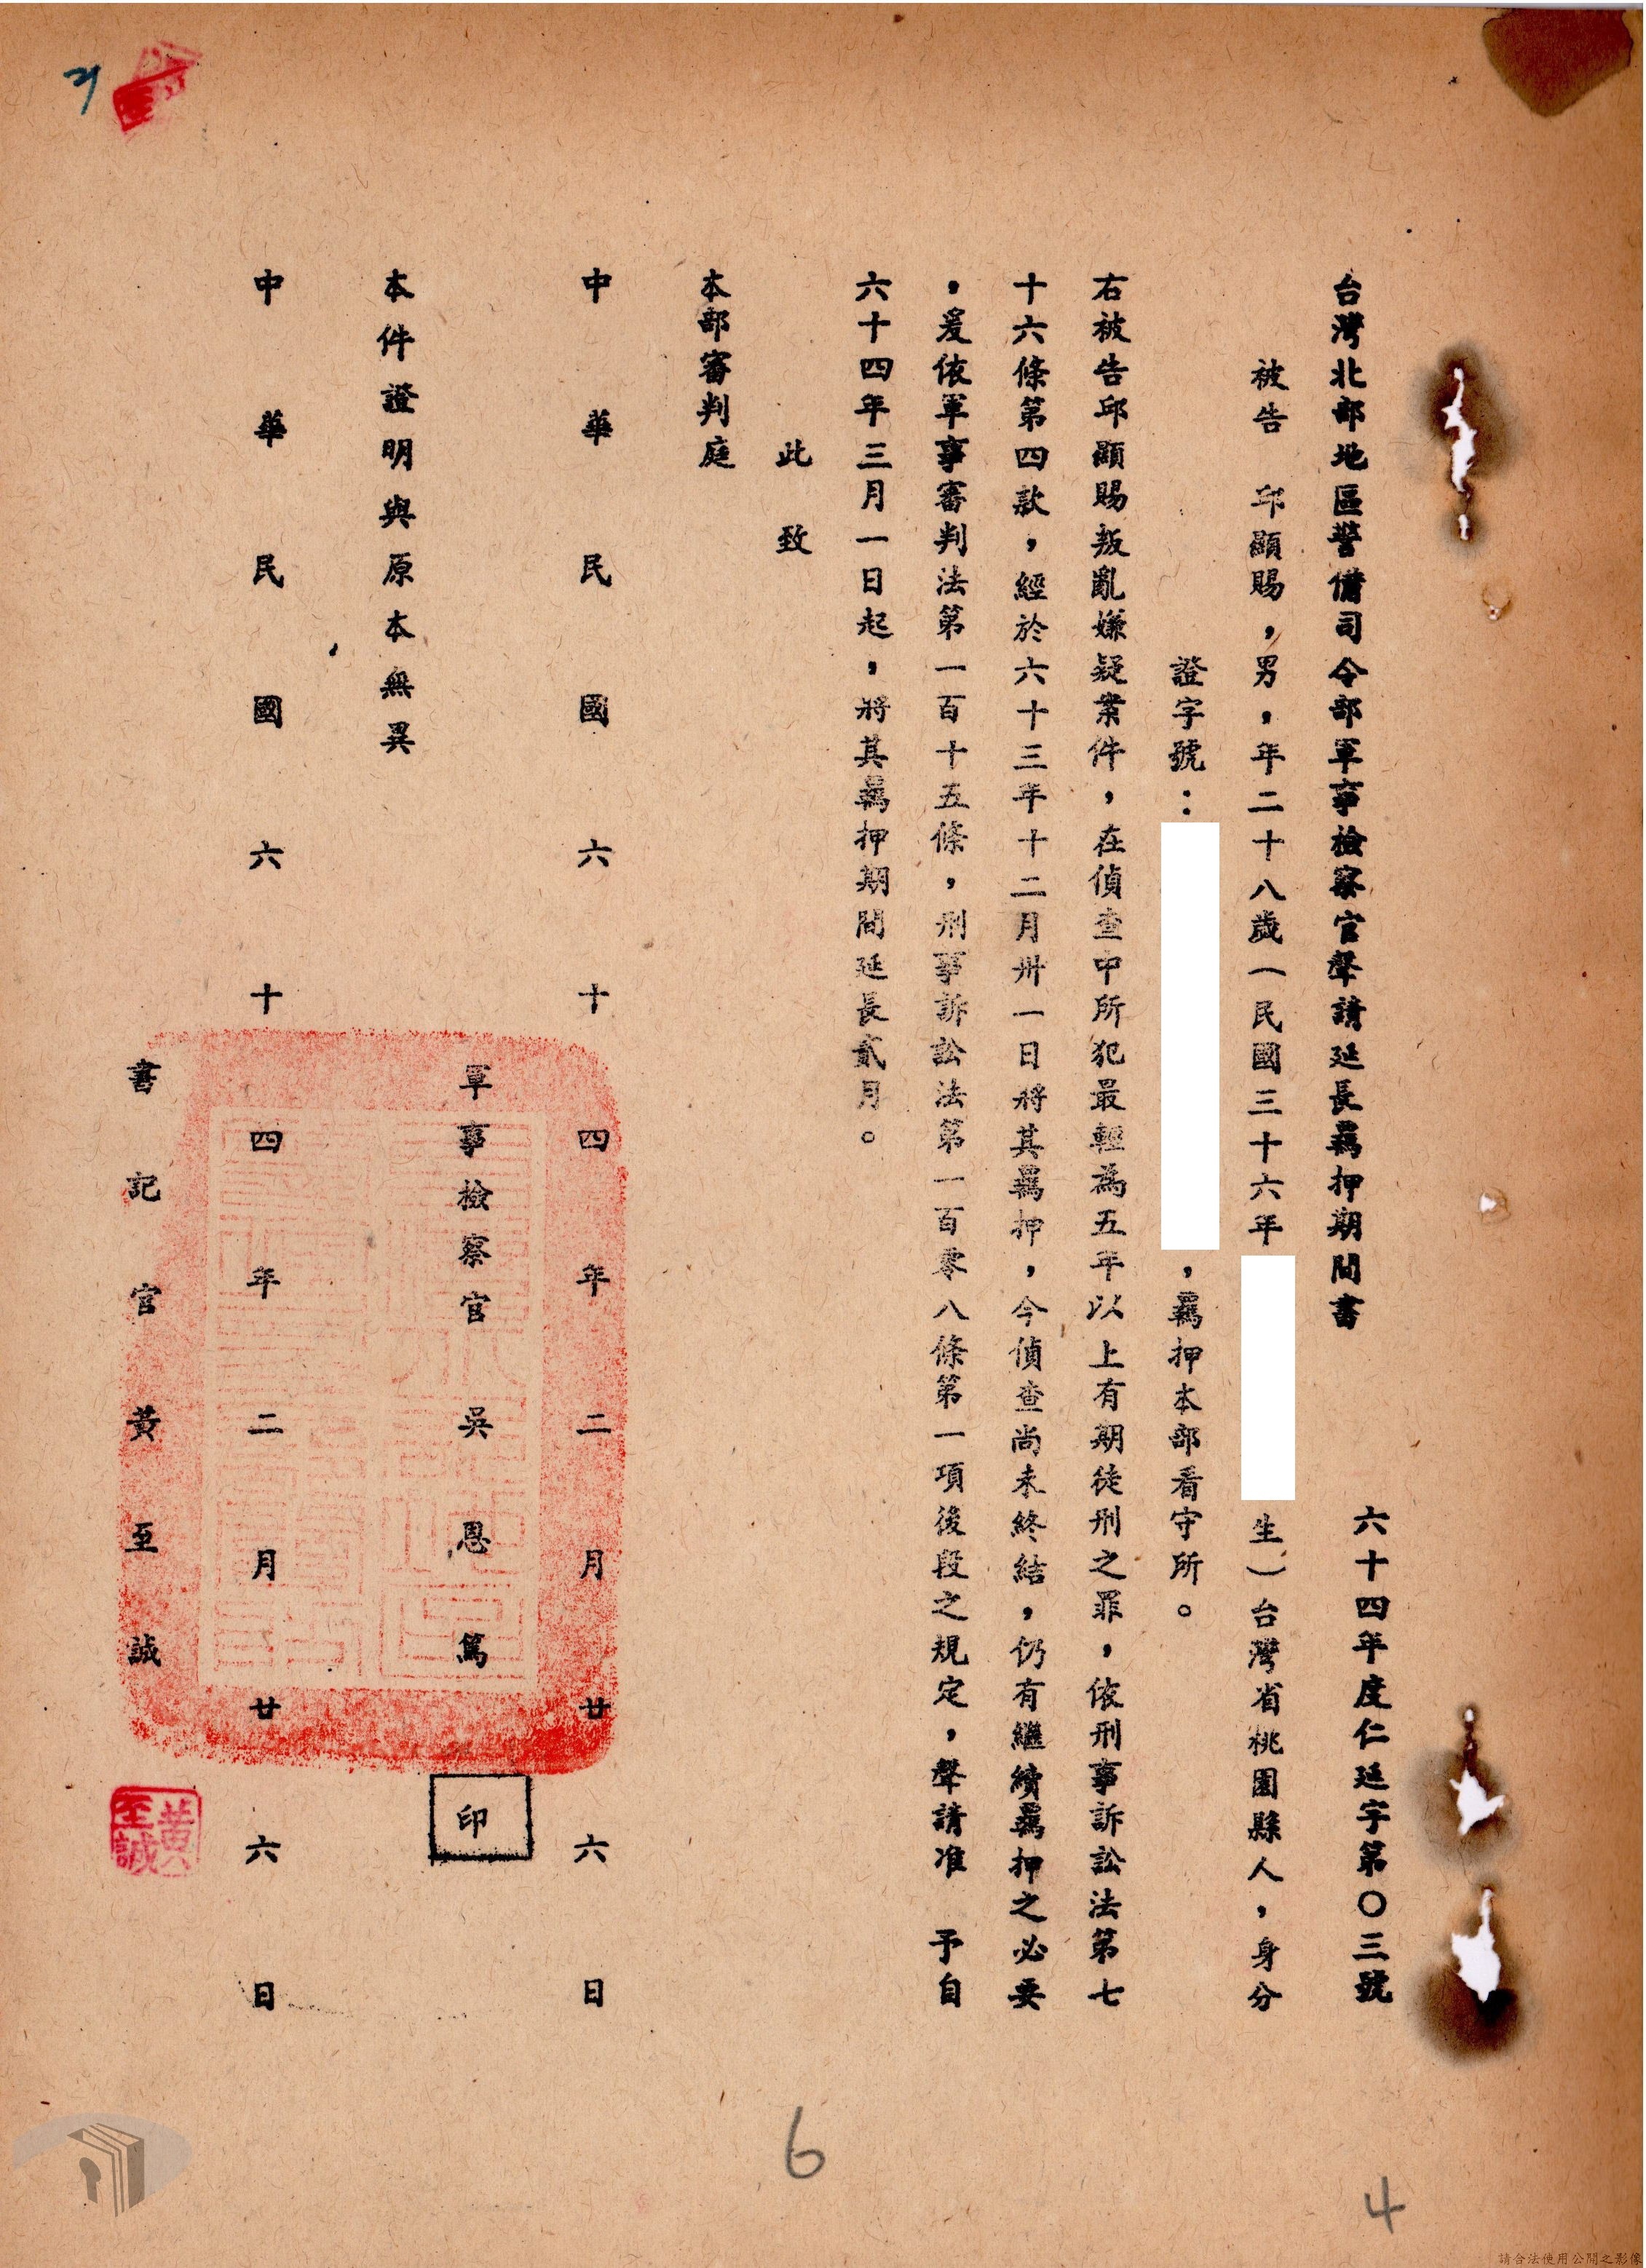 台灣北部地區警備司令部軍事檢察官聲請延長羈押期間書
六十四年度仁廷字第〇三號
被告　邱顯賜，男，年二十八歲（民國三十六年
生）台灣省桃園縣人，身分
證字號：
，羈押本部看守所。
右被告邱顯賜叛亂嫌疑案件，在偵查中所犯最輕為五年以上有期徒刑之罪，依刑事訴訟法第七
十六條第四款，經於六十三年十二月卅一日將其羈押，今偵查尚未終結，仍有繼續羈押之必要
，爰依軍事審判法第一百十五條，刑事訴訟法第一百零八條第一項後段之規定，聲請准　予自
六十四年三月一日起，將其羈押期間延長貳月。
此致
本部審判庭
中華民國六十四年二月廿六日
軍事檢察官　吳恩篤
印
本件證明與原本無異
中華民國六十四年二月廿六日
書記官　黃至誠
黃至誠
6
4
請合法使用公開之影像